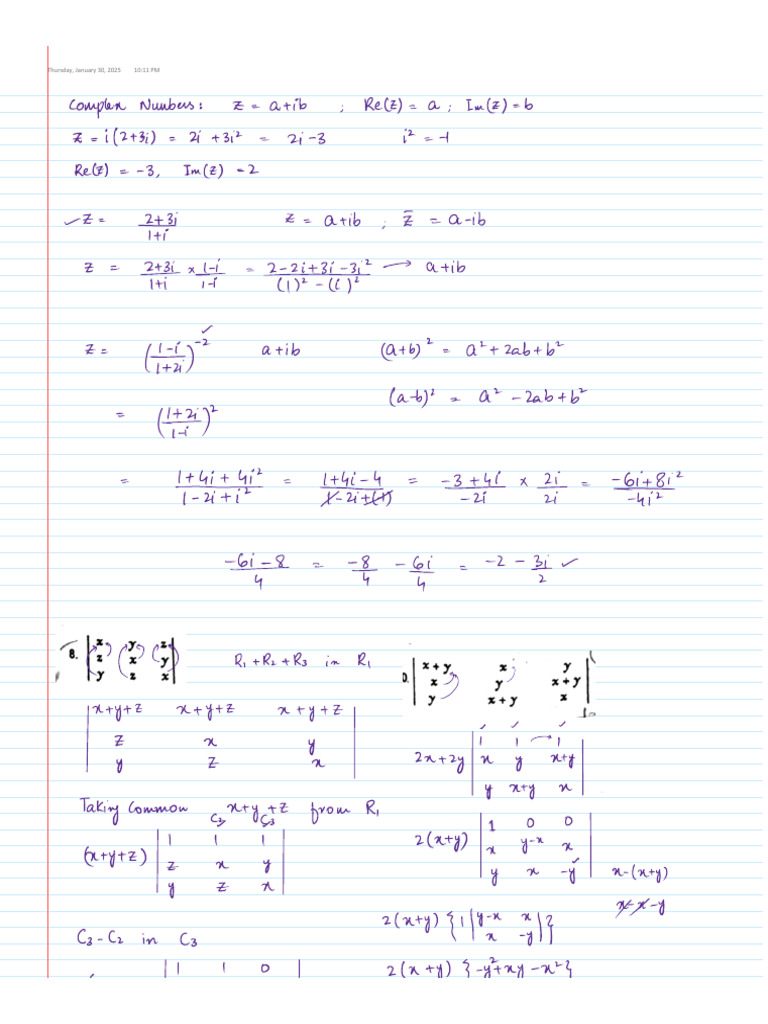 Thursday, January 30, 2025 10:11 PM
Complex Numbers: z = a+ib ; Re(z) = a ; Im(z) = b
z = i(2+3i) = 2i + 3i² = 2i - 3 i² = -1
Re(z) = -3, Im(z) = 2
✓ z = (2+3i)/(1+i) z = a+ib ; z̄ = a-ib
z = (2+3i)/(1+i) × (1-i)/(1-i) = (2-2i+3i-3i²)/((1)² - (i)²) → a+ib
z = ((1-i)/(1+2i))⁻² ✓ a+ib (a+b)² = a² + 2ab + b²
(a-b)² = a² - 2ab + b²
= ((1+2i)/(1-i))²
= (1+4i+4i²)/(1-2i+i²) = (1+4i-4)/(1-2i+(-1)) = (-3+4i)/(-2i) × 2i/2i = (-6i+8i²)/(-4i²)
(-6i-8)/4 = -8/4 - 6i/4 = -2 - 3i/2 ✓
8. | x y z |
| z x y |
| y z x |
R₁+R₂+R₃ in R₁
| x+y+z x+y+z x+y+z |
| z x y |
| y z x |
Taking Common x+y+z from R₁
C₂ C₃
(x+y+z) | 1 1 1 |
| z x y |
| y z x |
C₃ - C₂ in C₃
| 1 1 0 |
| x+y x y |
| x y x+y |
| y x+y x |
2x+2y | 1 1 → 1 |
| x y x+y |
| y x+y x |
2(x+y) | 1 0 0 |
| x y-x x |
| y x -y |
x-(x+y)
x-x-y
2(x+y) {1 | y-x x |
| x -y |}
2(x+y) {-y²+xy-x²}